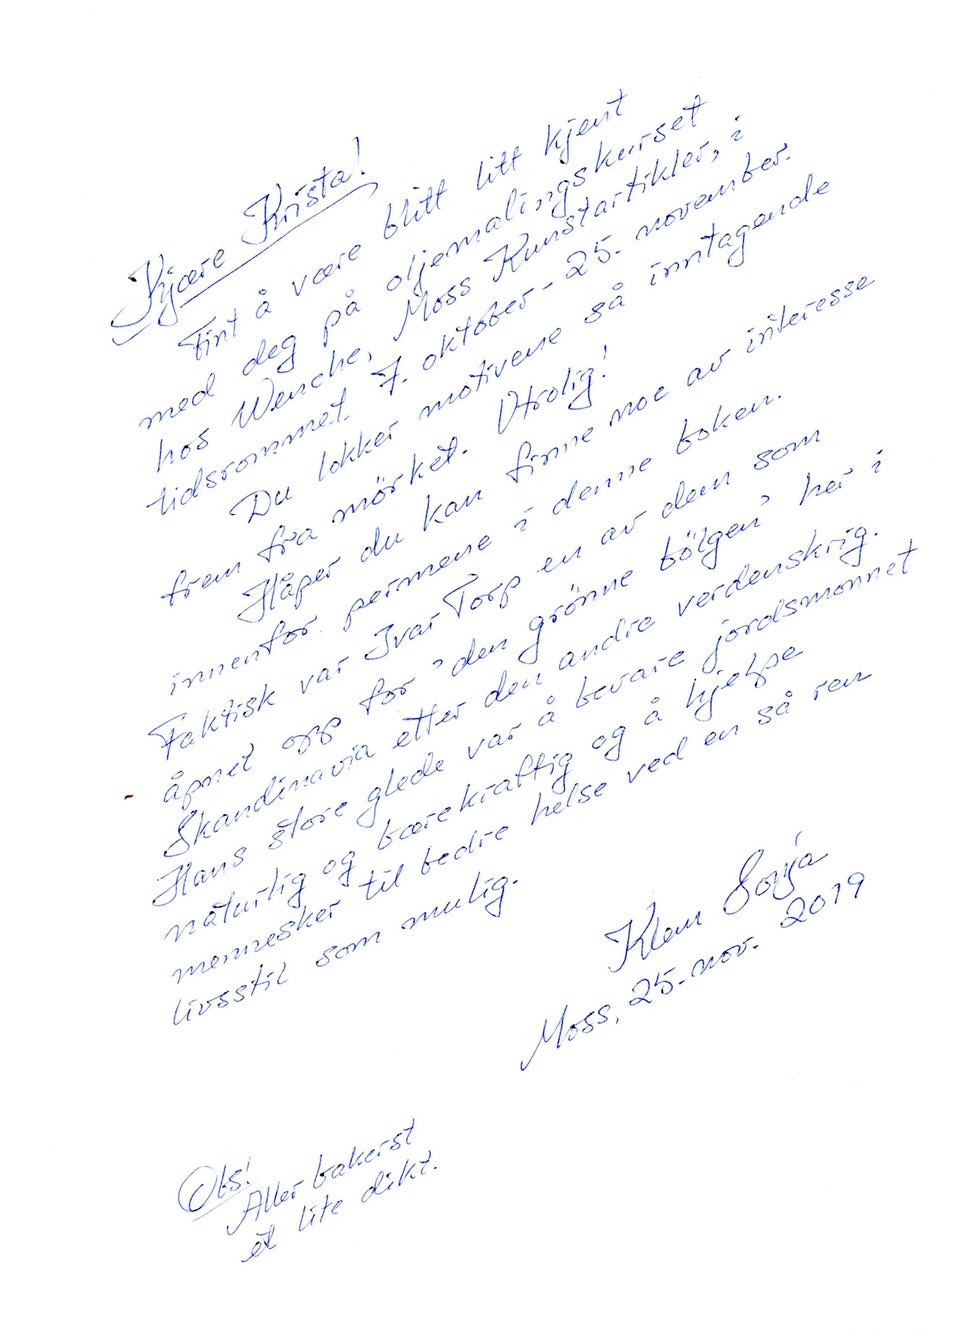 Kjære Krista!
Fint å være blitt litt kjent
med deg på oljemalingskurset
hos Wenche, Moss Kunstartikler, i
tidsrommet 7. oktober - 25. november.
Du lokker motivene så inntagende
frem fra mörket. Utrolig!
Håper du kan finne noe av interesse
innenfor permene i denne boken.
Faktisk var Ivar Torp en av dem som
åpnet opp for "den grönne bölgen" her i
Skandinavia etter den andre verdenskrig.
Hans store glede var å bevare jordsmonnet
naturlig og bærekraftig og å hjelpe
mennesker til bedre helse ved en så ren
livsstil som mulig.
Klem Sonja
Moss, 25. nov. 2019
Obs!
Aller bakerst
et lite dikt.